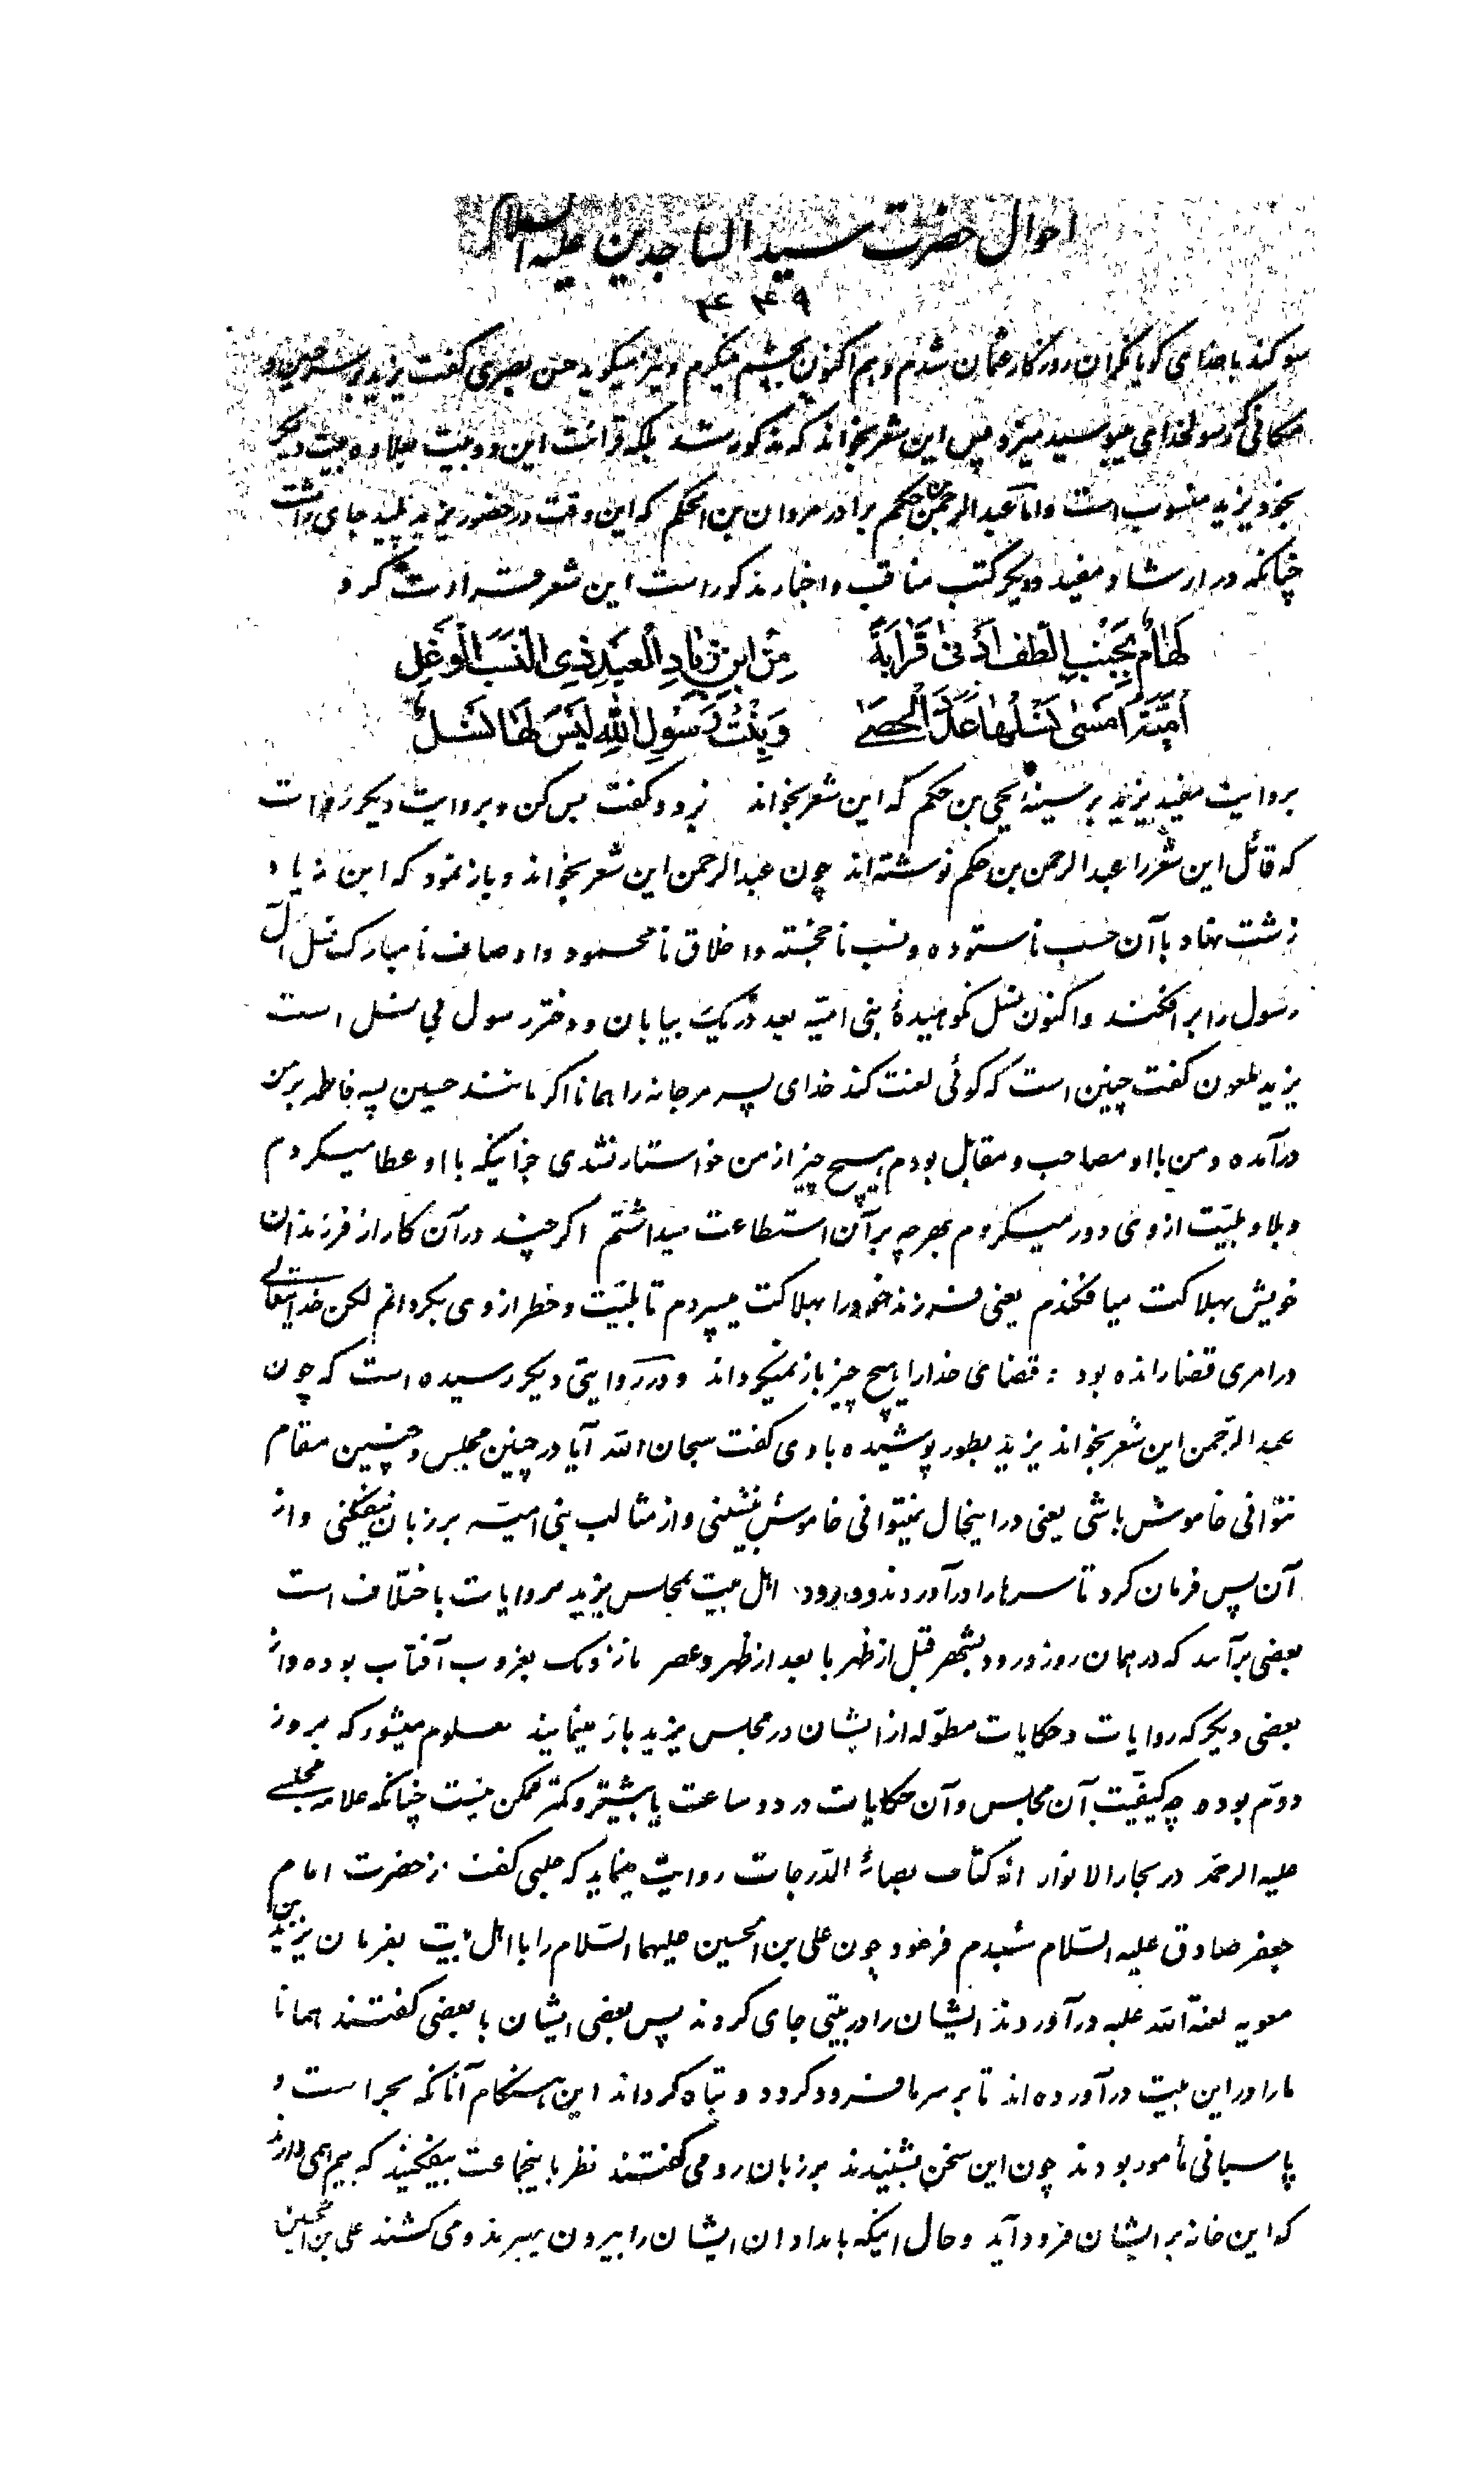 احوال حضرت سید الساجدین علیه السلام
۴۴۹
سوکند با خدای کویا نکران روزکار عثمان شدم و هم اکنون بچشم مینکرم و نیز میکوید حسن بصری کفت یزید بر سر حسین و
مکانی که رسولخدامی بوسید میزد پس این شعر بخواند که مذکور شد بلکه قرائت این دو بیت بعلاوه بیت دیکر
بخود یزید منسوب است و اما عبد الرحمن بن حکم برادر مروان بن الحکم که این وقت در حضور یزید پلید جای داشت
چنانکه در ارشاد مفید و دیکر کتب مناقب و اخبار مذکور است این شعر قرائت کرد
لَهامٌ بِجَنْبِ الطَّفِّ اَدْنی قَرابَةً مِنِ ابْنِ زِیادِ الْعَبْدِ ذِی النَّسَبِ الْوَغْلِ
اُمَیَّةُ اَمْسی نَسْلُها عَدَدَ الْحَصی وَ بِنْتُ رَسُولِ اللهِ لَیْسَ لَها نَسْلٌ
بروایت مفید یزید بر سینه یحیی بن حکم که این شعر بخواند بزد و کفت بس کن و بروایت دیکر روات
که قائل این شعر را عبد الرحمن بن حکم نوشته‌اند چون عبد الرحمن این شعر بخواند و باز نمود که ابن زیاد
زشت نهاد با آن حسب ناستوده و نسب ناخجسته و اخلاق نامحمود و اوصاف نامبارک نسل آل
رسول را برافکند و اکنون نسل نکوهیدهٔ بنی امیّه بعدد ریک بیابان و دختر رسول بی نسل است
یزید ملعون کفت چنین است که کوئی لعنت کند خدای پسر مرجانه را همانا اکر مانند حسین پسر فاطمه بر من
درآمده و من با او مصاحب و مقابل بودم هیچ چیز از من خواستار نشدی جز اینکه با او عطا میکردم
و بلا و بلیّت از وی دور میکردم بهر چه بر آن استطاعت میداشتم اکر چند در آن کار از فرزندان
خویش بهلاکت میافکندم یعنی فرزند خود را بهلاکت میسپردم تا بلیّت و خطر از وی بکردانم لکن خدایتعالی
در امری قضا رانده بود : قضای خدا را هیچ چیز باز نمیکرداند و در روایتی دیکر رسیده است که چون
عبد الرّحمن این شعر بخواند یزید بطور پوشیده با وی کفت سبحان الله آیا در چنین مجلس و چنین مقام
نتوانی خاموش باشی یعنی در اینحال نمیتوانی خاموش بنشینی و از مثالب بنی امیّه بر زبان نیفکنی و از
آن پس فرمان کرد تا سرها را درآوردند و ورود اهل بیت بمجلس یزید بروایات باختلاف است
بعضی برآنند که در همان روز ورود بشهر قبل از ظهر یا بعد از ظهر و عصر یا نزدیک بغروب آفتاب بوده و از
بعضی دیکر که روایات و حکایات مطوّله از ایشان در مجلس یزید باز مینمایند معلوم میشود که بروز
دوّم بوده چه کیفیّت آن مجلس و آن حکایات در دو ساعت یا بیشتر و کمتر ممکن نیست چنانکه علامه مجلسی
علیه الرحمه در بحار الانوار از کتاب بصائر الدّرجات روایت مینماید که حلبی کفت از حضرت امام
جعفر صادق علیه السّلام شنیدم فرمود چون علی بن الحسین علیهما السّلام را با اهل بیت بفرمان یزید بن
معویه لعنة الله علیه درآوردند ایشان را در بیتی جای کردند پس بعضی ایشان با بعضی کفتند همانا
ما را در این بیت درآورده‌اند تا بر سر ما فرود کردد و تباه کرداند این هنکام آنانکه بحراست و
پاسبانی مأمور بودند چون این سخن بشنیدند بر زبان رومی کفتند نظر باینجماعت بیفکنید که بیم همی دارند
که این خانه بر ایشان فرود آید و حال اینکه بامدادان ایشان را بیرون میبرند و می کشند علی بن الحسین